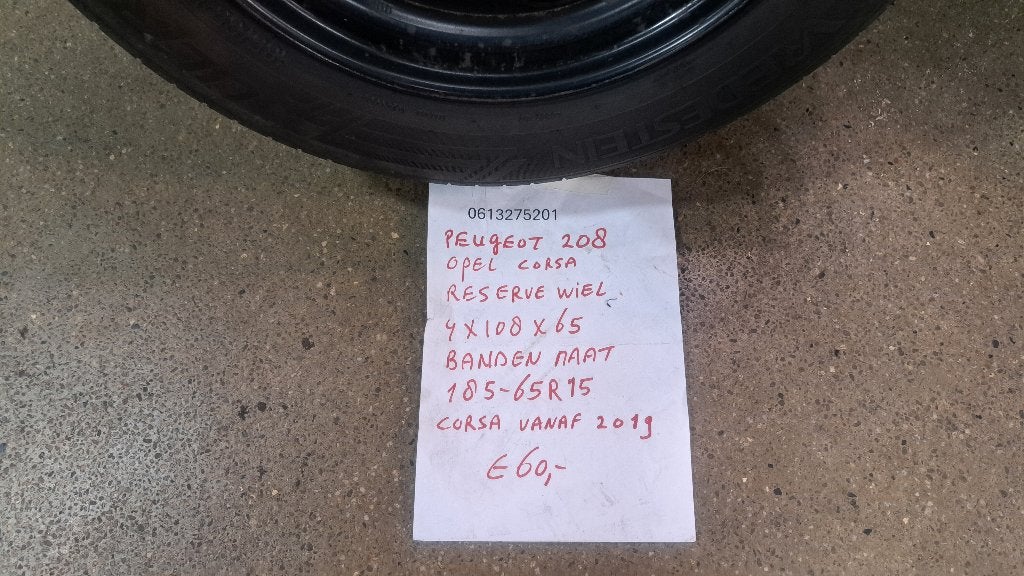 VREDESTEIN
0613275201
PEUGEOT 208
OPEL CORSA
RESERVE WIEL
4X108X65
BANDEN MAAT
185-65R15
CORSA VANAF 2019
€60,-